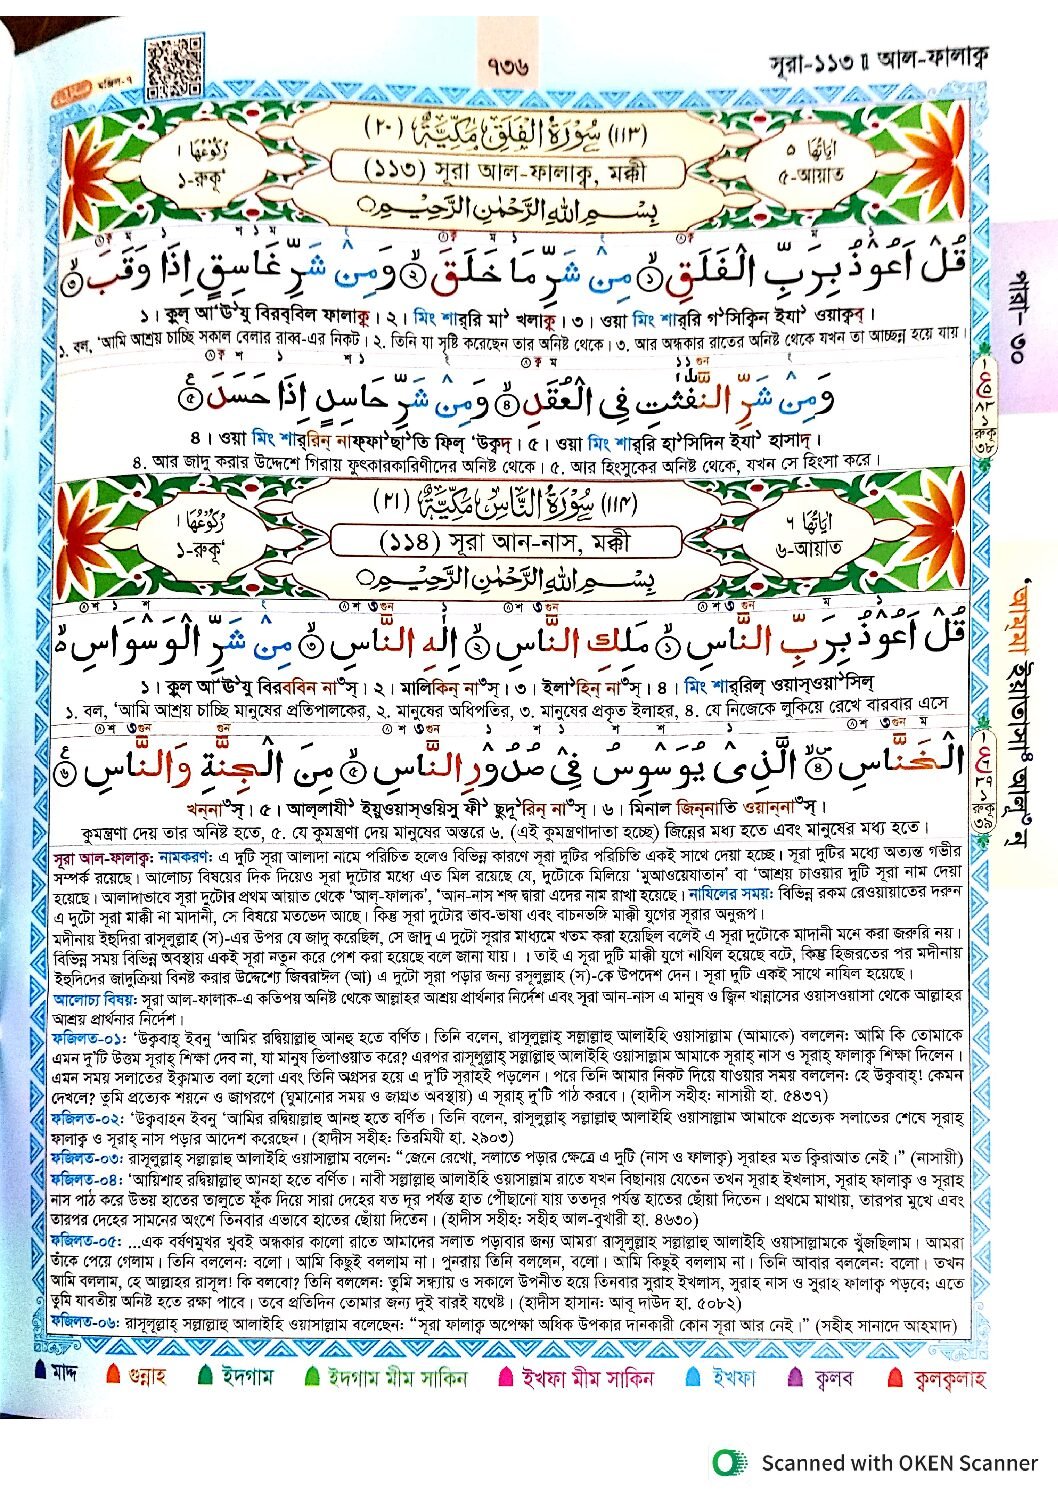 ৭৩৬
সূরা-১১৩ ॥ আল-ফালাক্ব
মঞ্জিল-৭
(۱۱۳) سُوْرَةُ الْفَلَقِ مَكِّيَّةٌ (۲۰)
اٰيَاتُهَا ٥
رُكُوْعُهَا ١
(১১৩) সূরা আল-ফালাক্ব, মক্কী
৫-আয়াত
১-রুকূ‘
بِسْمِ اللهِ الرَّحْمٰنِ الرَّحِيْمِ
قُلْ اَعُوْذُ بِرَبِّ الْفَلَقِ ۝١ مِنْ شَرِّ مَا خَلَقَ ۝٢ وَمِنْ شَرِّ غَاسِقٍ اِذَا وَقَبَ ۝٣
১। কুল্ আ‘উযু বিরব্বিল ফালাকু। ২। মিং শার্‌রি মা’ খলাকু। ৩। ওয়া মিং শার্‌রি গ’সিক্বিন ইযা’ ওয়াক্বব্।
১. বল, ‘আমি আশ্রয় চাচ্ছি সকাল বেলার রাব্ব-এর নিকট। ২. তিনি যা সৃষ্টি করেছেন তার অনিষ্ট থেকে। ৩. আর অন্ধকার রাতের অনিষ্ট থেকে যখন তা আচ্ছন্ন হয়ে যায়।
وَمِنْ شَرِّ النَّفّٰثٰتِ فِى الْعُقَدِ ۝٤ وَمِنْ شَرِّ حَاسِدٍ اِذَا حَسَدَ ۝٥
৪। ওয়া মিং শার্‌রিন্ নাফ্‌ফা’ছা’তি ফিল্ ‘উক্বদ্। ৫। ওয়া মিং শার্‌রি হা’সিদিন ইযা’ হাসাদ্।
৪. আর জাদু করার উদ্দেশে গিরায় ফুৎকারকারিণীদের অনিষ্ট থেকে। ৫. আর হিংসুকের অনিষ্ট থেকে, যখন সে হিংসা করে।
(۱۱۴) سُوْرَةُ النَّاسِ مَكِّيَّةٌ (۲۱)
اٰيَاتُهَا ٦
رُكُوْعُهَا ١
(১১৪) সূরা আন-নাস, মক্কী
৬-আয়াত
১-রুকূ‘
بِسْمِ اللهِ الرَّحْمٰنِ الرَّحِيْمِ
قُلْ اَعُوْذُ بِرَبِّ النَّاسِ ۝١ مَلِكِ النَّاسِ ۝٢ اِلٰهِ النَّاسِ ۝٣ مِنْ شَرِّ الْوَسْوَاسِ
১। কুল আ‘ঊযু বিরববিন না’স্। ২। মালিকিন্ না’স্। ৩। ইলা’হিন্ না’স্। ৪। মিং শার্‌রিল্ ওয়াস্‌ওয়া’সিল্
১. বল, ‘আমি আশ্রয় চাচ্ছি মানুষের প্রতিপালকের, ২. মানুষের অধিপতির, ৩. মানুষের প্রকৃত ইলাহর, ৪. যে নিজেকে লুকিয়ে রেখে বারবার এসে
الْخَنَّاسِ ۝٤ الَّذِىْ يُوَسْوِسُ فِىْ صُدُوْرِ النَّاسِ ۝٥ مِنَ الْجِنَّةِ وَالنَّاسِ ۝٦
খন্‌না’স্। ৫। আল্‌লাযী’ ইয়ুওয়াস্‌ওয়িসু ফী’ ছুদূ’রিন্ না’স্। ৬। মিনাল জিন্‌নাতি ওয়ান্‌না’স্।
কুমন্ত্রণা দেয় তার অনিষ্ট হতে, ৫. যে কুমন্ত্রণা দেয় মানুষের অন্তরে ৬. (এই কুমন্ত্রণাদাতা হচ্ছে) জিন্নের মধ্য হতে এবং মানুষের মধ্য হতে।
সূরা আল-ফালাক্ব: নামকরণ: এ দুটি সূরা আলাদা নামে পরিচিত হলেও বিভিন্ন কারণে সূরা দুটির পরিচিতি একই সাথে দেয়া হচ্ছে। সূরা দুটির মধ্যে অত্যন্ত গভীর
সম্পর্ক রয়েছে। আলোচ্য বিষয়ের দিক দিয়েও সূরা দুটোর মধ্যে এত মিল রয়েছে যে, দুটোকে মিলিয়ে ‘মুআওয়েযাতান’ বা ‘আশ্রয় চাওয়ার দুটি সূরা নাম দেয়া
হয়েছে। আলাদাভাবে সূরা দুটোর প্রথম আয়াত থেকে ‘আল্-ফালাক’, ‘আন-নাস শব্দ দ্বারা এদের নাম রাখা হয়েছে। নাযিলের সময়: বিভিন্ন রকম রেওয়ায়াতের দরুন
এ দুটো সূরা মাক্কী না মাদানী, সে বিষয়ে মতভেদ আছে। কিন্তু সূরা দুটোর ভাব-ভাষা এবং বাচনভঙ্গি মাক্কী যুগের সূরার অনুরূপ।
মদীনায় ইহুদিরা রাসূলুল্লাহ (স)-এর উপর যে জাদু করেছিল, সে জাদু এ দুটো সূরার মাধ্যমে খতম করা হয়েছিল বলেই এ সূরা দুটোকে মাদানী মনে করা জরুরি নয়।
বিভিন্ন সময় বিভিন্ন অবস্থায় একই সূরা নতুন করে পেশ করা হয়েছে বলে জানা যায়। । তাই এ সূরা দুটি মাক্কী যুগে নাযিল হয়েছে বটে, কিন্তু হিজরতের পর মদীনায়
ইহুদিদের জাদুক্রিয়া বিনষ্ট করার উদ্দেশ্যে জিবরাঈল (আ) এ দুটো সূরা পড়ার জন্য রসুলুল্লাহ (স)-কে উপদেশ দেন। সূরা দুটি একই সাথে নাযিল হয়েছে।
আলোচ্য বিষয়: সূরা আল-ফালাক-এ কতিপয় অনিষ্ট থেকে আল্লাহর আশ্রয় প্রার্থনার নির্দেশ এবং সূরা আন-নাস এ মানুষ ও জ্বিন খান্নাসের ওয়াসওয়াসা থেকে আল্লাহর
আশ্রয় প্রার্থনার নির্দেশ।
ফজিলত-০১: ‘উক্ববাহ্ ইবনু ‘আমির রদ্বিয়াল্লাহু আনহু হতে বর্ণিত। তিনি বলেন, রাসূলুল্লাহ্ সল্লাল্লাহু আলাইহি ওয়াসাল্লাম (আমাকে) বললেন: আমি কি তোমাকে
এমন দু’টি উত্তম সূরাহ্ শিক্ষা দেব না, যা মানুষ তিলাওয়াত করে? এরপর রাসূলুল্লাহ্ সল্লাল্লাহু আলাইহি ওয়াসাল্লাম আমাকে সূরাহ্ নাস ও সূরাহ্ ফালাক্ব শিক্ষা দিলেন।
এমন সময় সলাতের ইক্বামাত বলা হলো এবং তিনি অগ্রসর হয়ে এ দু’টি সূরাহই পড়লেন। পরে তিনি আমার নিকট দিয়ে যাওয়ার সময় বললেন: হে উক্ববাহ্! কেমন
দেখলে? তুমি প্রত্যেক শয়নে ও জাগরণে (ঘুমানোর সময় ও জাগ্রত অবস্থায়) এ সূরাহ্ দু’টি পাঠ করবে। (হাদীস সহীহ: নাসায়ী হা. ৫৪৩৭)
ফজিলত-০২: ‘উক্ববাহন ইবনু ‘আমির রদ্বিয়াল্লাহু আনহু হতে বর্ণিত। তিনি বলেন, রাসূলুল্লাহ্ সল্লাল্লাহু আলাইহি ওয়াসাল্লাম আমাকে প্রত্যেক সলাতের শেষে সূরাহ্
ফালাক্ব ও সূরাহ্ নাস পড়ার আদেশ করেছেন। (হাদীস সহীহ: তিরমিযী হা. ২৯০৩)
ফজিলত-০৩: রাসূলুল্লাহ্ সল্লাল্লাহু আলাইহি ওয়াসাল্লাম বলেন: “জেনে রেখো, সলাতে পড়ার ক্ষেত্রে এ দুটি (নাস ও ফালাক্ব) সূরাহর মত ক্বিরাআত নেই।” (নাসায়ী)
ফজিলত-০৪: ‘আয়িশাহ্ রদ্বিয়াল্লাহু আনহা হতে বর্ণিত। নাবী সল্লাল্লাহু আলাইহি ওয়াসাল্লাম রাতে যখন বিছানায় যেতেন তখন সূরাহ্ ইখলাস, সূরাহ্ ফালাক্ব ও সূরাহ্
নাস পাঠ করে উভয় হাতের তালুতে ফুঁক দিয়ে সারা দেহের যত দূর পর্যন্ত হাত পৌঁছানো যায় ততদূর পর্যন্ত হাতের ছোঁয়া দিতেন। প্রথমে মাথায়, তারপর মুখে এবং
তারপর দেহের সামনের অংশে তিনবার এভাবে হাতের ছোঁয়া দিতেন। (হাদীস সহীহ: সহীহ আল-বুখারী হা. ৪৬৩০)
ফজিলত-০৫: ...এক বর্ষণমুখর খুবই অন্ধকার কালো রাতে আমাদের সলাত পড়াবার জন্য আমরা রাসূলুল্লাহ্ সল্লাল্লাহু আলাইহি ওয়াসাল্লামকে খুঁজছিলাম। আমরা
তাঁকে পেয়ে গেলাম। তিনি বললেন: বলো। আমি কিছুই বললাম না। পুনরায় তিনি বললেন, বলো। আমি কিছুই বললাম না। তিনি আবার বললেন: বলো। তখন
আমি বললাম, হে আল্লাহর রাসূল! কি বলবো? তিনি বললেন: তুমি সন্ধ্যায় ও সকালে উপনীত হয়ে তিনবার সুরাহ ইখলাস, সুরাহ নাস ও সুরাহ ফালাক্ব পড়বে; এতে
তুমি যাবতীয় অনিষ্ট হতে রক্ষা পাবে। তবে প্রতিদিন তোমার জন্য দুই বারই যথেষ্ট। (হাদীস হাসান: আবূ দাউদ হা. ৫০৮২)
ফজিলত-০৬: রাসূলুল্লাহ্ সল্লাল্লাহু আলাইহি ওয়াসাল্লাম বলেছেন: “সূরা ফালাক্ব অপেক্ষা অধিক উপকার দানকারী কোন সূরা আর নেই।” (সহীহ সানাদে আহমাদ)
মাদ্দ গুন্নাহ ইদগাম ইদগাম মীম সাকিন ইখফা মীম সাকিন ইখফা ক্বলব ক্বলক্বলাহ
পারা- ৩০
রুকূ
৩৮
রুকূ
৩৯
Scanned with OKEN Scanner